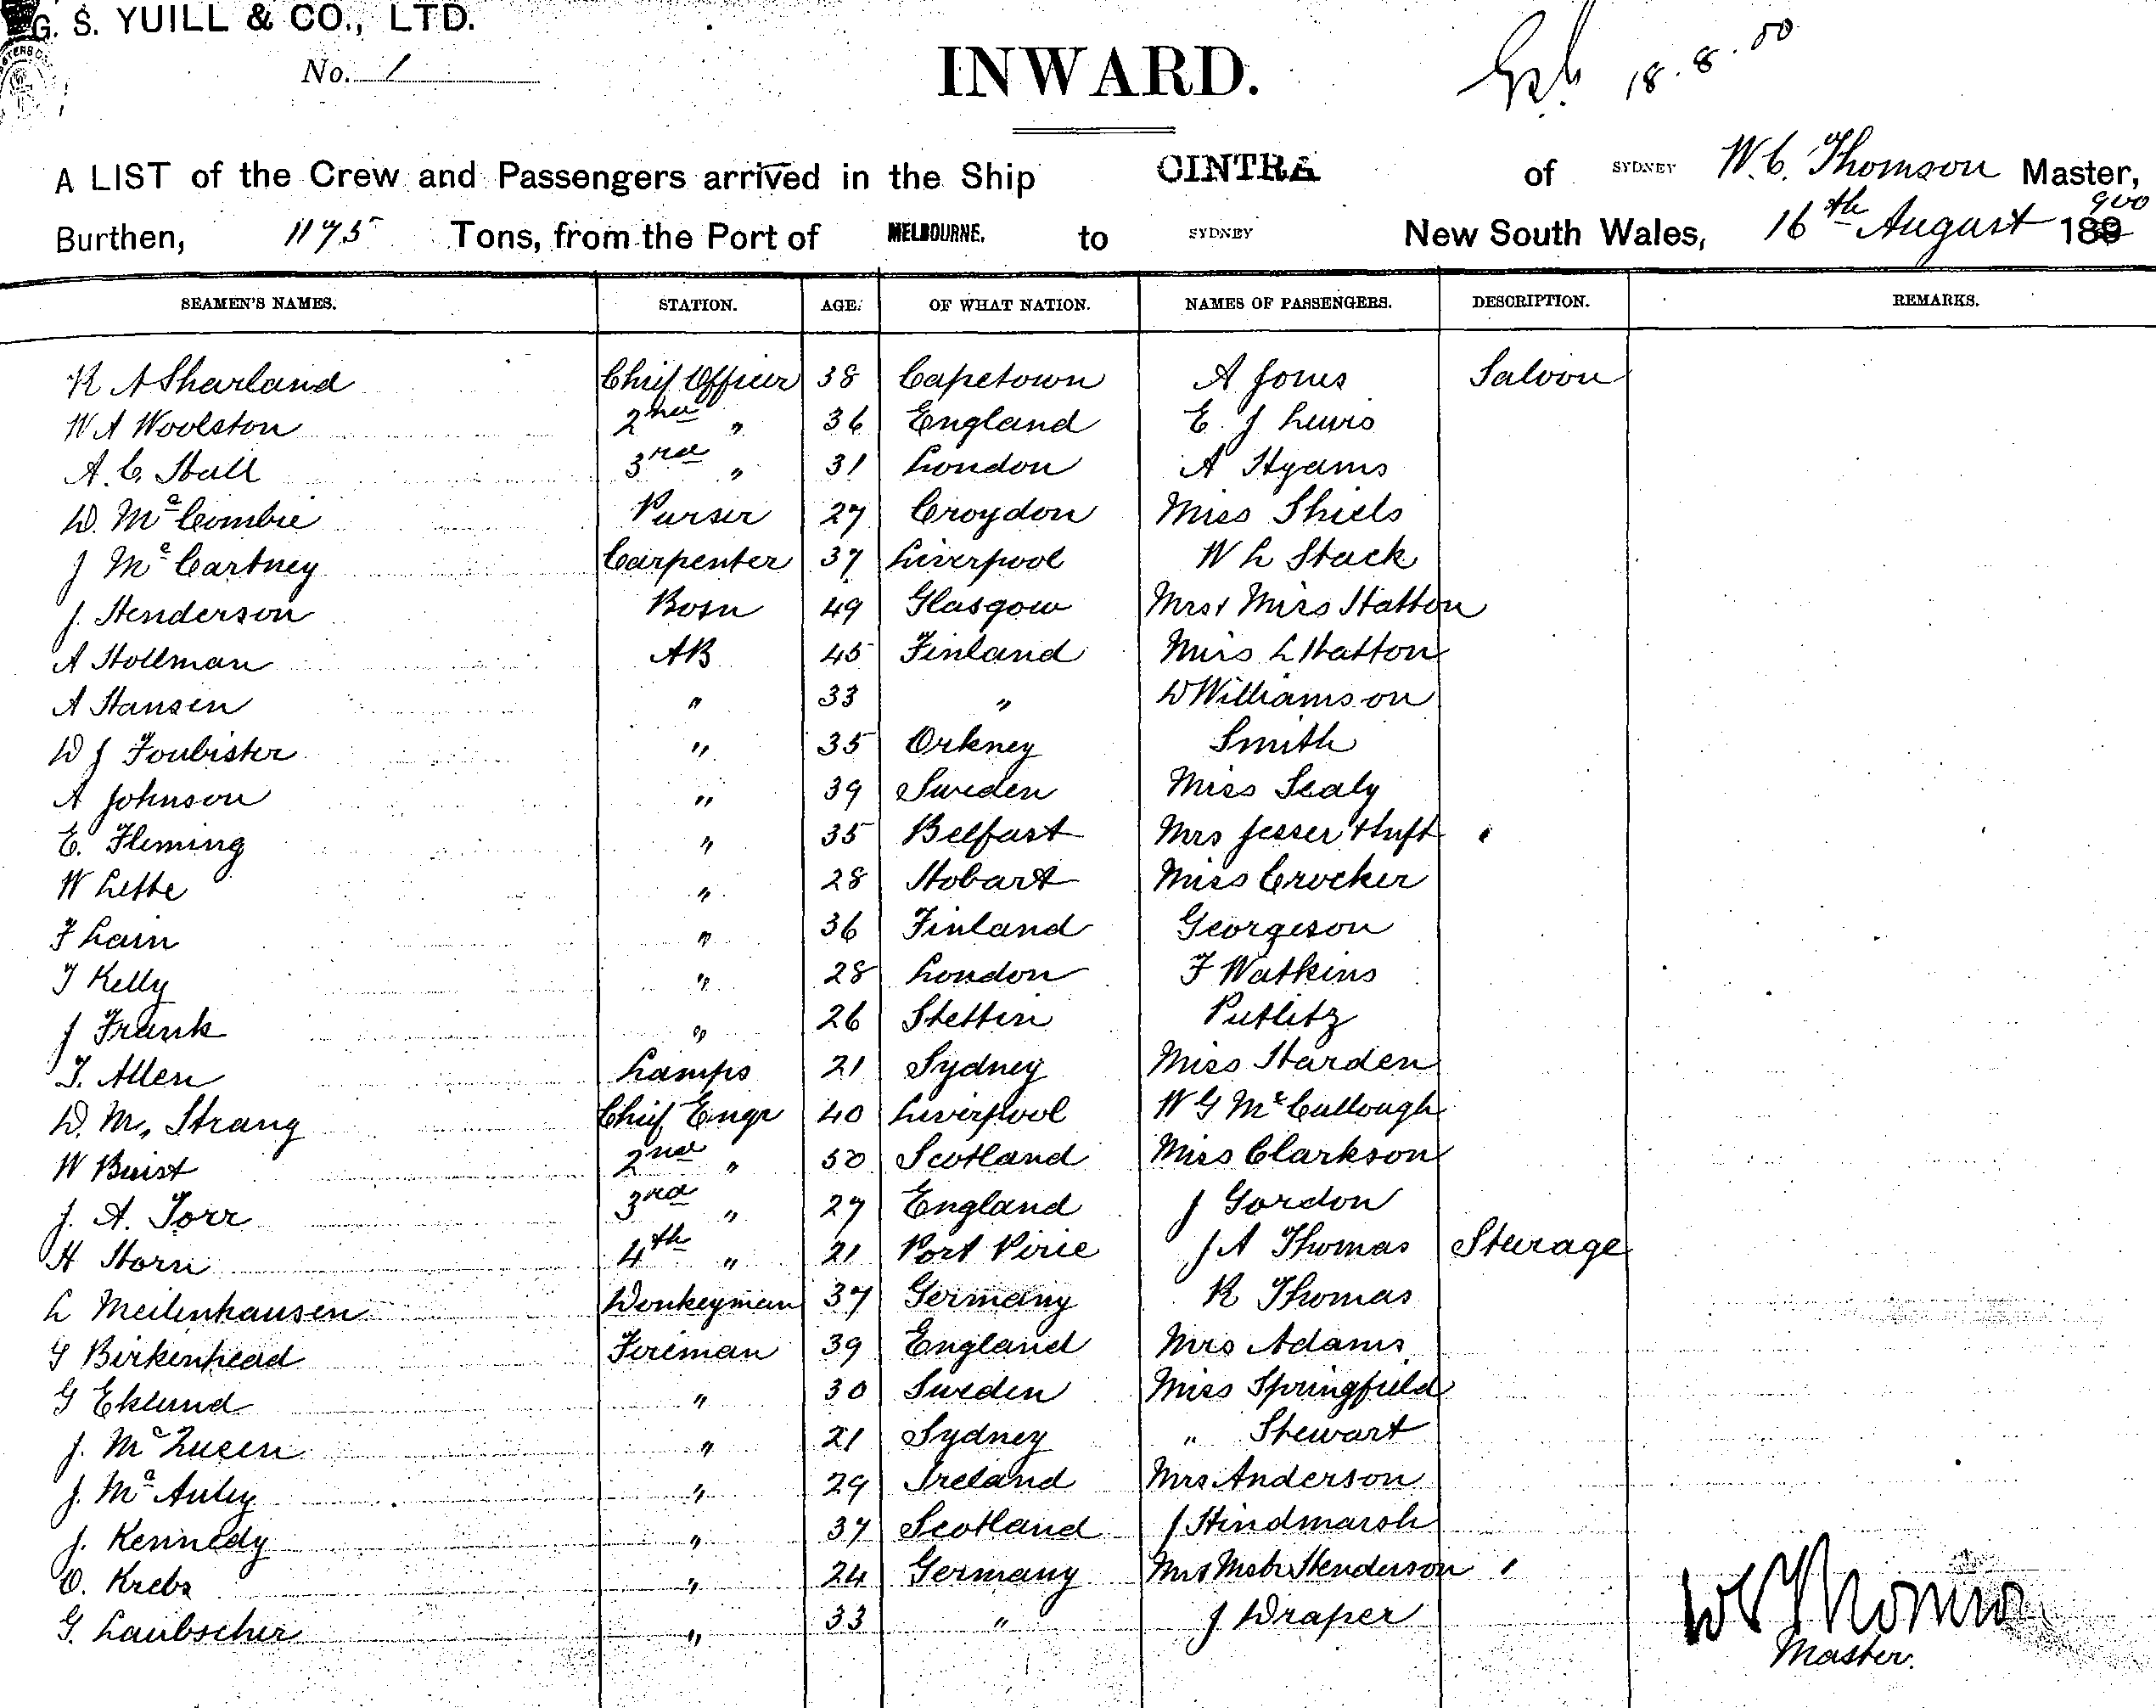 G. S. YUILL & CO., LTD.
No. 1
INWARD.
18.8.00
A LIST of the Crew and Passengers arrived in the Ship CINTRA of SYDNEY W. C. Thomson Master,
Burthen, 1175 Tons, from the Port of MELBOURNE. to SYDNEY New South Wales, 16th August 1900
SEAMEN'S NAMES. STATION. AGE. OF WHAT NATION. NAMES OF PASSENGERS. DESCRIPTION. REMARKS.
R A Sharland Chief Officer 38 Capetown A Jones Saloon
W A Woolston 2nd " 36 England E. J Lewis
A. C. Hall 3rd " 31 London A Hyams
D. McCombie Purser 27 Croydon Miss Shiels
J McCartney Carpenter 37 Liverpool W L Stack
J. Henderson Bosn 49 Glasgow Mrs & Miss Hatton
A Hollman AB 45 Finland Miss L Hatton
A Hansen " 33 " D Williamson
W J Foubister " 35 Orkney Smith
A Johnson " 39 Sweden Miss Sealy
E. Fleming " 35 Belfast Mrs Jesser
W Lette " 28 Hobart Miss Crocker
F Lain " 36 Finland Georgeson
T Kelly " 28 London F Watkins
J Frank " 26 Stettin Putlitz
T. Allen Lamps 21 Sydney Miss Harden
D. M. Strang Chief Engr 40 Liverpool W G McCullough
W Buist 2nd " 50 Scotland Miss Clarkson
J. A. Torr 3rd " 27 England J Gordon
H Horn 4th " 21 Port Pirie J A Thomas Steerage
L Meilenhausen Donkeyman 37 Germany R Thomas
G Birkenhead Fireman 39 England Mrs Adams
G Eklund " 30 Sweden Miss Springfield
J. McQueen " 21 Sydney " Stewart
J. McAuley " 29 Ireland Mrs Anderson
J. Kennedy " 37 Scotland J Hindmarsh
O. Krebs " 24 Germany Mrs & Mstr Henderson
G. Laubscher " 33 " J Draper
W C Thomson
Master.